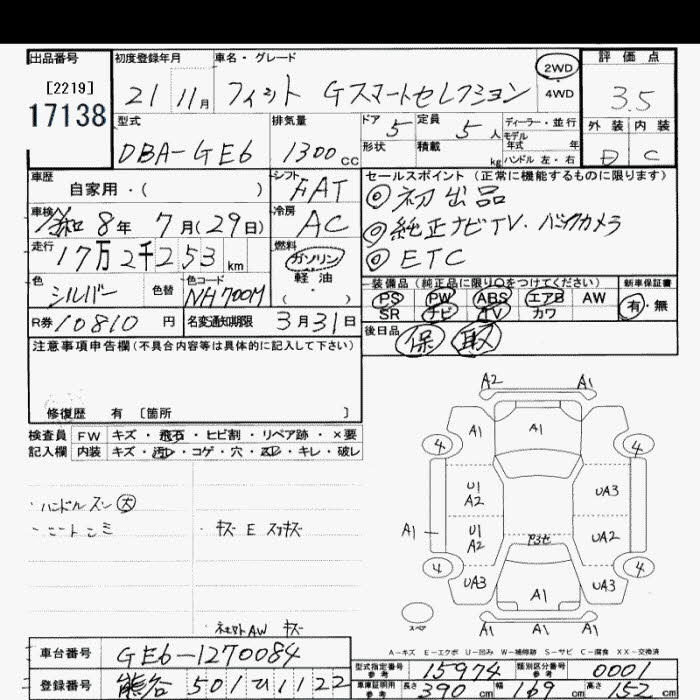 出品番号 初度登録年月 車名・グレード 2WD 評価点
[2219] 21 11月 フィット Gスマートセレクション 4WD 3.5
17138 型式 排気量 ドア 5 定員 5人 ディーラー・並行 外装 内装
DBA-GE6 1300cc 形状 積載 kg モデル年式 年 D C
ハンドル 左・右
車歴 シフト セールスポイント(正常に機能するものに限ります)
自家用・( ) FAT ◎初出品
車検 冷房 ◎純正ナビTV.バックカメラ
令和8年 7月(29日) AC ◎ETC
走行 燃料
17万2千253km ガソリン 装備品(純正品に限り○をつけてください) 新車保証書
色 色替 色コード 軽油 PS PW ABS エアB AW 有・無
シルバー NH700M ・( ) SR ナビ TV カワ
R券 10810円 名変通知期限 3月31日 後日品 保 取
注意事項申告欄(不具合内容等は具体的に記入して下さい)
修復歴 有 [箇所 ]
検査員 FW キズ・飛石・ヒビ割・リペア跡・×要
記入欄 内装 キズ・汚レ・コゲ・穴・スレ・キレ・破レ
A2 A1
A1 A1
4 4
U1 A2 UA3
A1 U1 A2 UA2
4 4
UA3 A1 UA3
スペア A1 A1 A1
・ハンドルスレ 大
キズ E スリキズ
AW キズ
A-キズ E-エクボ U-凹み W-補修跡 S-サビ C-腐食 XX-交換済
車台番号 GE6-1270084 型式指定番号 参考 15974 類別区分番号 参考 0001
登録番号 熊谷 501ひ1122 車庫証明用 参考 長さ 390cm 幅 169cm 高さ 152cm